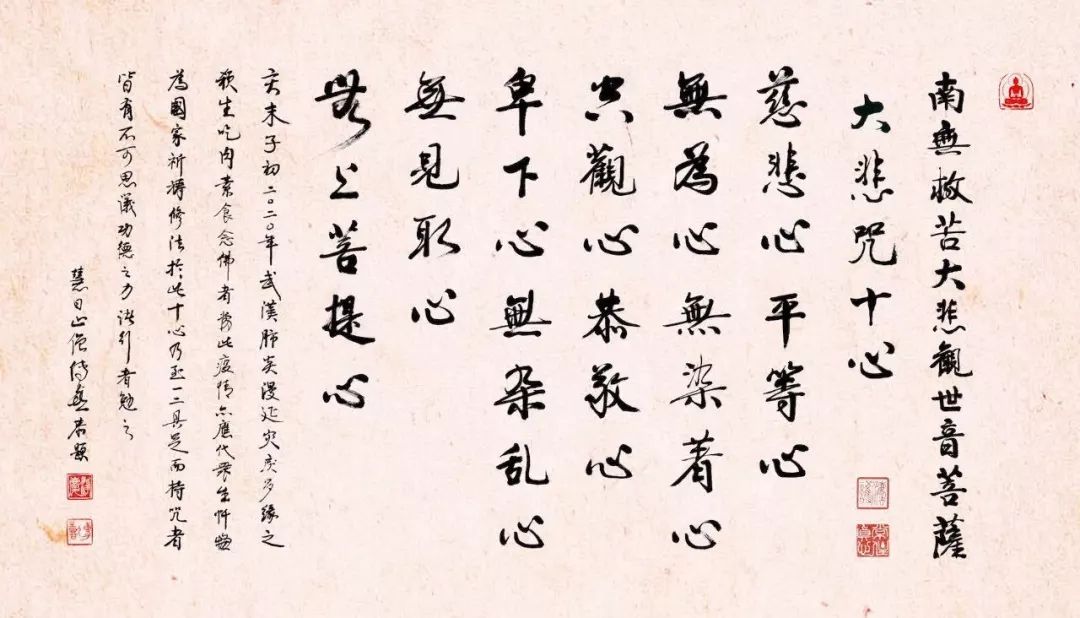 南無救苦大悲觀世音菩薩
大悲咒十心
慈悲心平等心
無為心無染著心
空觀心恭敬心
卑下心無杂乱心
無見取心
無上菩提心
亥末子初二〇二〇年武漢肺炎漫延灾疾多缘之
殺生吃肉素食念佛者为此疫情亦應代眾生忏悔
為國家祈禱修法於此十心乃至一二具足而持咒者
皆有不可思議功德之力諸引者勉之
慧日山僧傳喜恭題